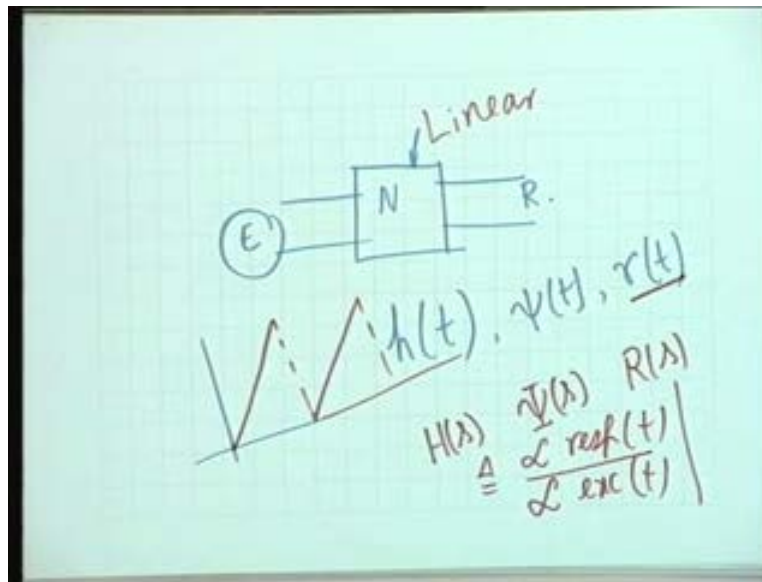 Linear
E N R.
h(t), ψ(t), r(t)
H(s) Ψ(s) R(s)
≜ ℒ resp(t)
ℒ exc(t)